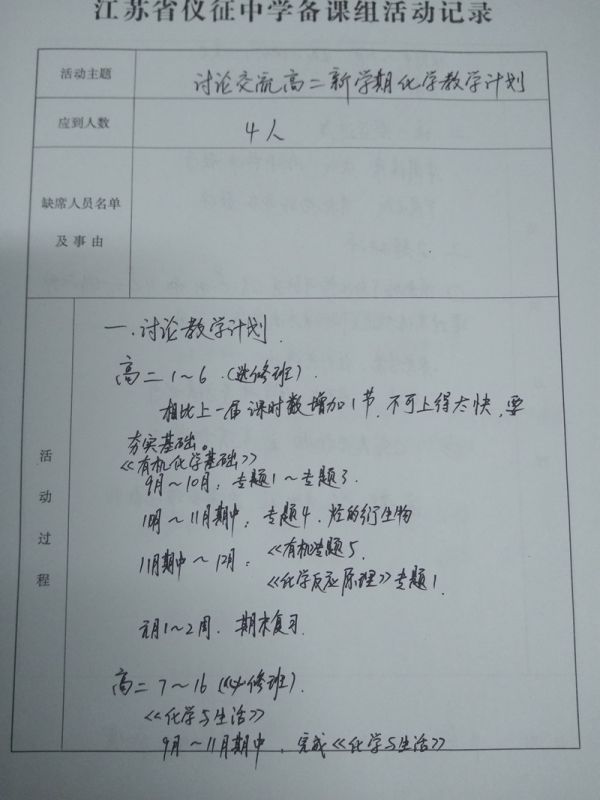 江苏省仪征中学备课组活动记录
活动主题 讨论交流高二新学期化学教学计划
应到人数 4人
缺席人员名单
及事由
活动过程
一.讨论教学计划.
高二1~6.(选修班).
相比上一届课时数增加1节,不可上得太快,要
夯实基础。
《有机化学基础》
9月~10月,专题1~专题3.
10月~11月期中,专题4.烃的衍生物
11月期中~12月.《有机》专题5.
《化学反应原理》专题1.
元月1~2周.期末复习.
高二7~16(必修班).
《化学与生活》
9月~11月期中,完成《化学与生活》